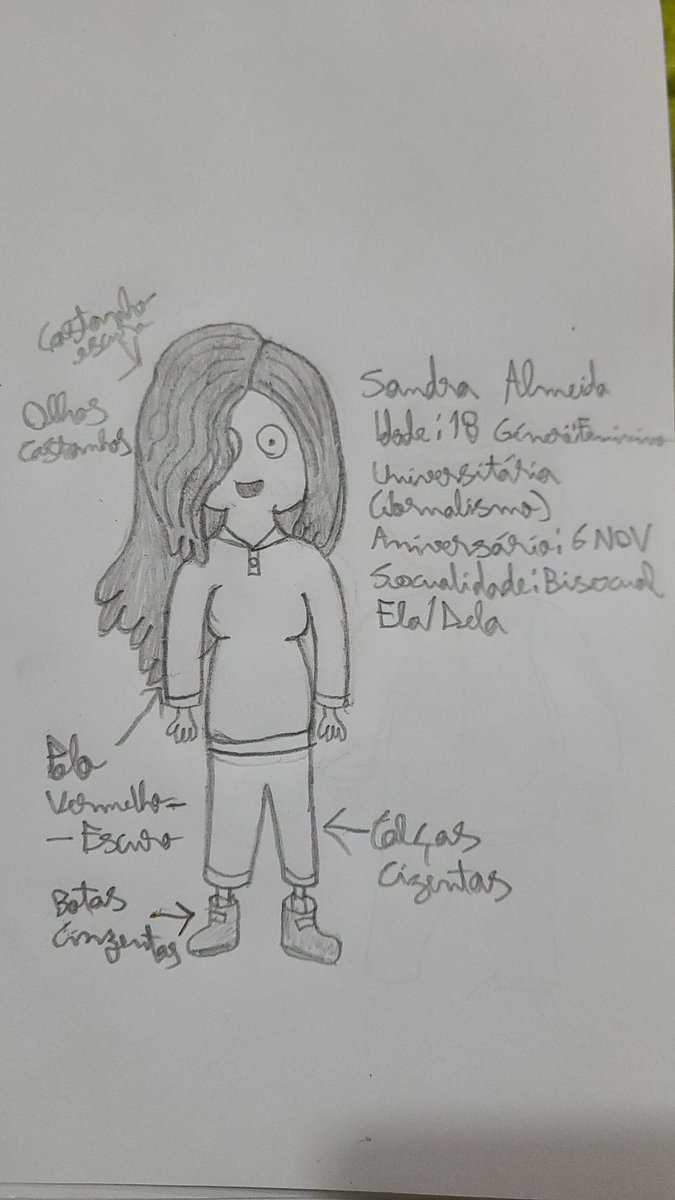 Castanho
escuro
Olhos
Castanhos
Sandra Almeida
Idade: 18 Género: Feminino
Universitária
(Jornalismo)
Aniversário: 6 NOV
Sexualidade: Bisexual
Ela/Dela
Vermelho-
-Escuro
Calças
Cizentas
Botas
Cinzentas